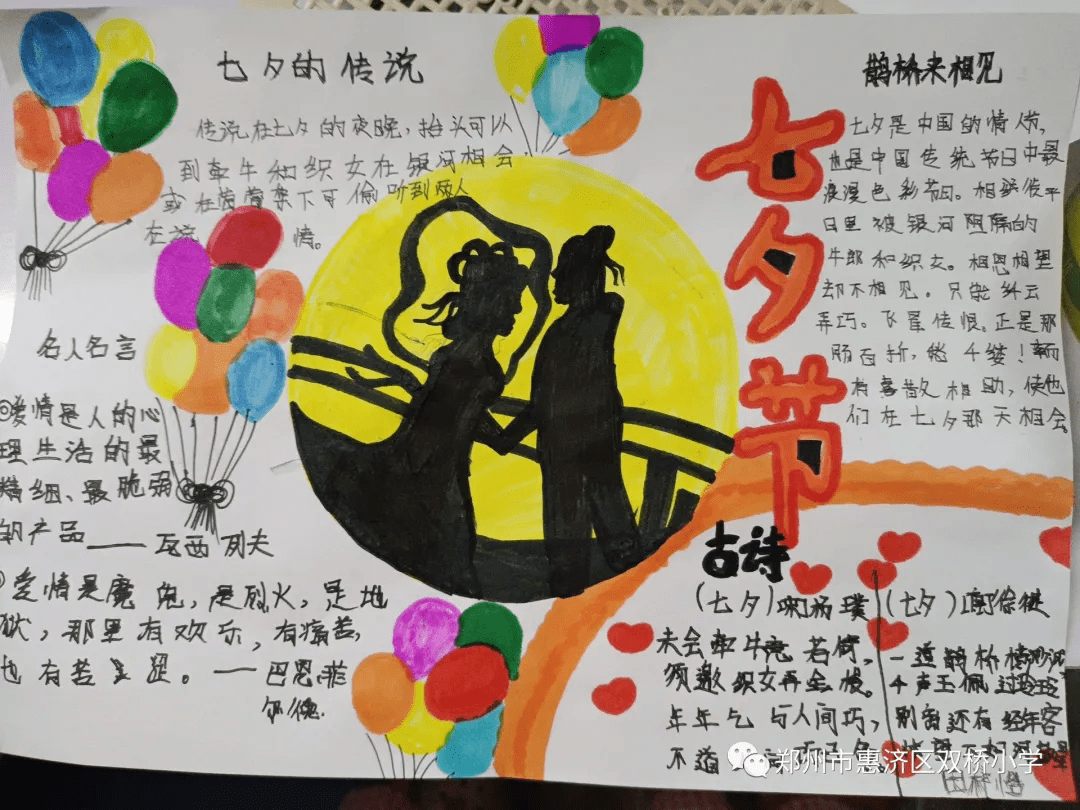 七夕的传说
传说在七夕的夜晚,抬头可以
到牵牛和织女在银河相会
或在 下可偷听到两人
在 情。
名人名言
①爱情是人的心
理生活的最
精细、最脆弱
的产品——瓦西列夫
爱情是魔鬼,是烈火,是地
狱,那里有欢乐,有痛苦,
也有苦 。——巴恩菲
尔德.
七夕节
鹊桥来相见
七夕是中国的情人节,
也是中国传统节日中最
浪漫色彩节日。相 平
日里被银河阻隔的
牛郎和织女。相思相望
却不相见。只能纤云
弄巧。飞星传恨。正是那
肠百折,愁千缕!幸而
有喜鹊相助,使他
们在七夕那天相会
古诗
(七夕) 杨璞
未会牵牛意若何,
须邀织女弄金梭。
年年乞与人间巧,
不道
(七夕) 徐
一道鹊桥横渺
千声玉佩过玲玲
别 还有经年客
不如河 星
郑州市惠济区双桥小学